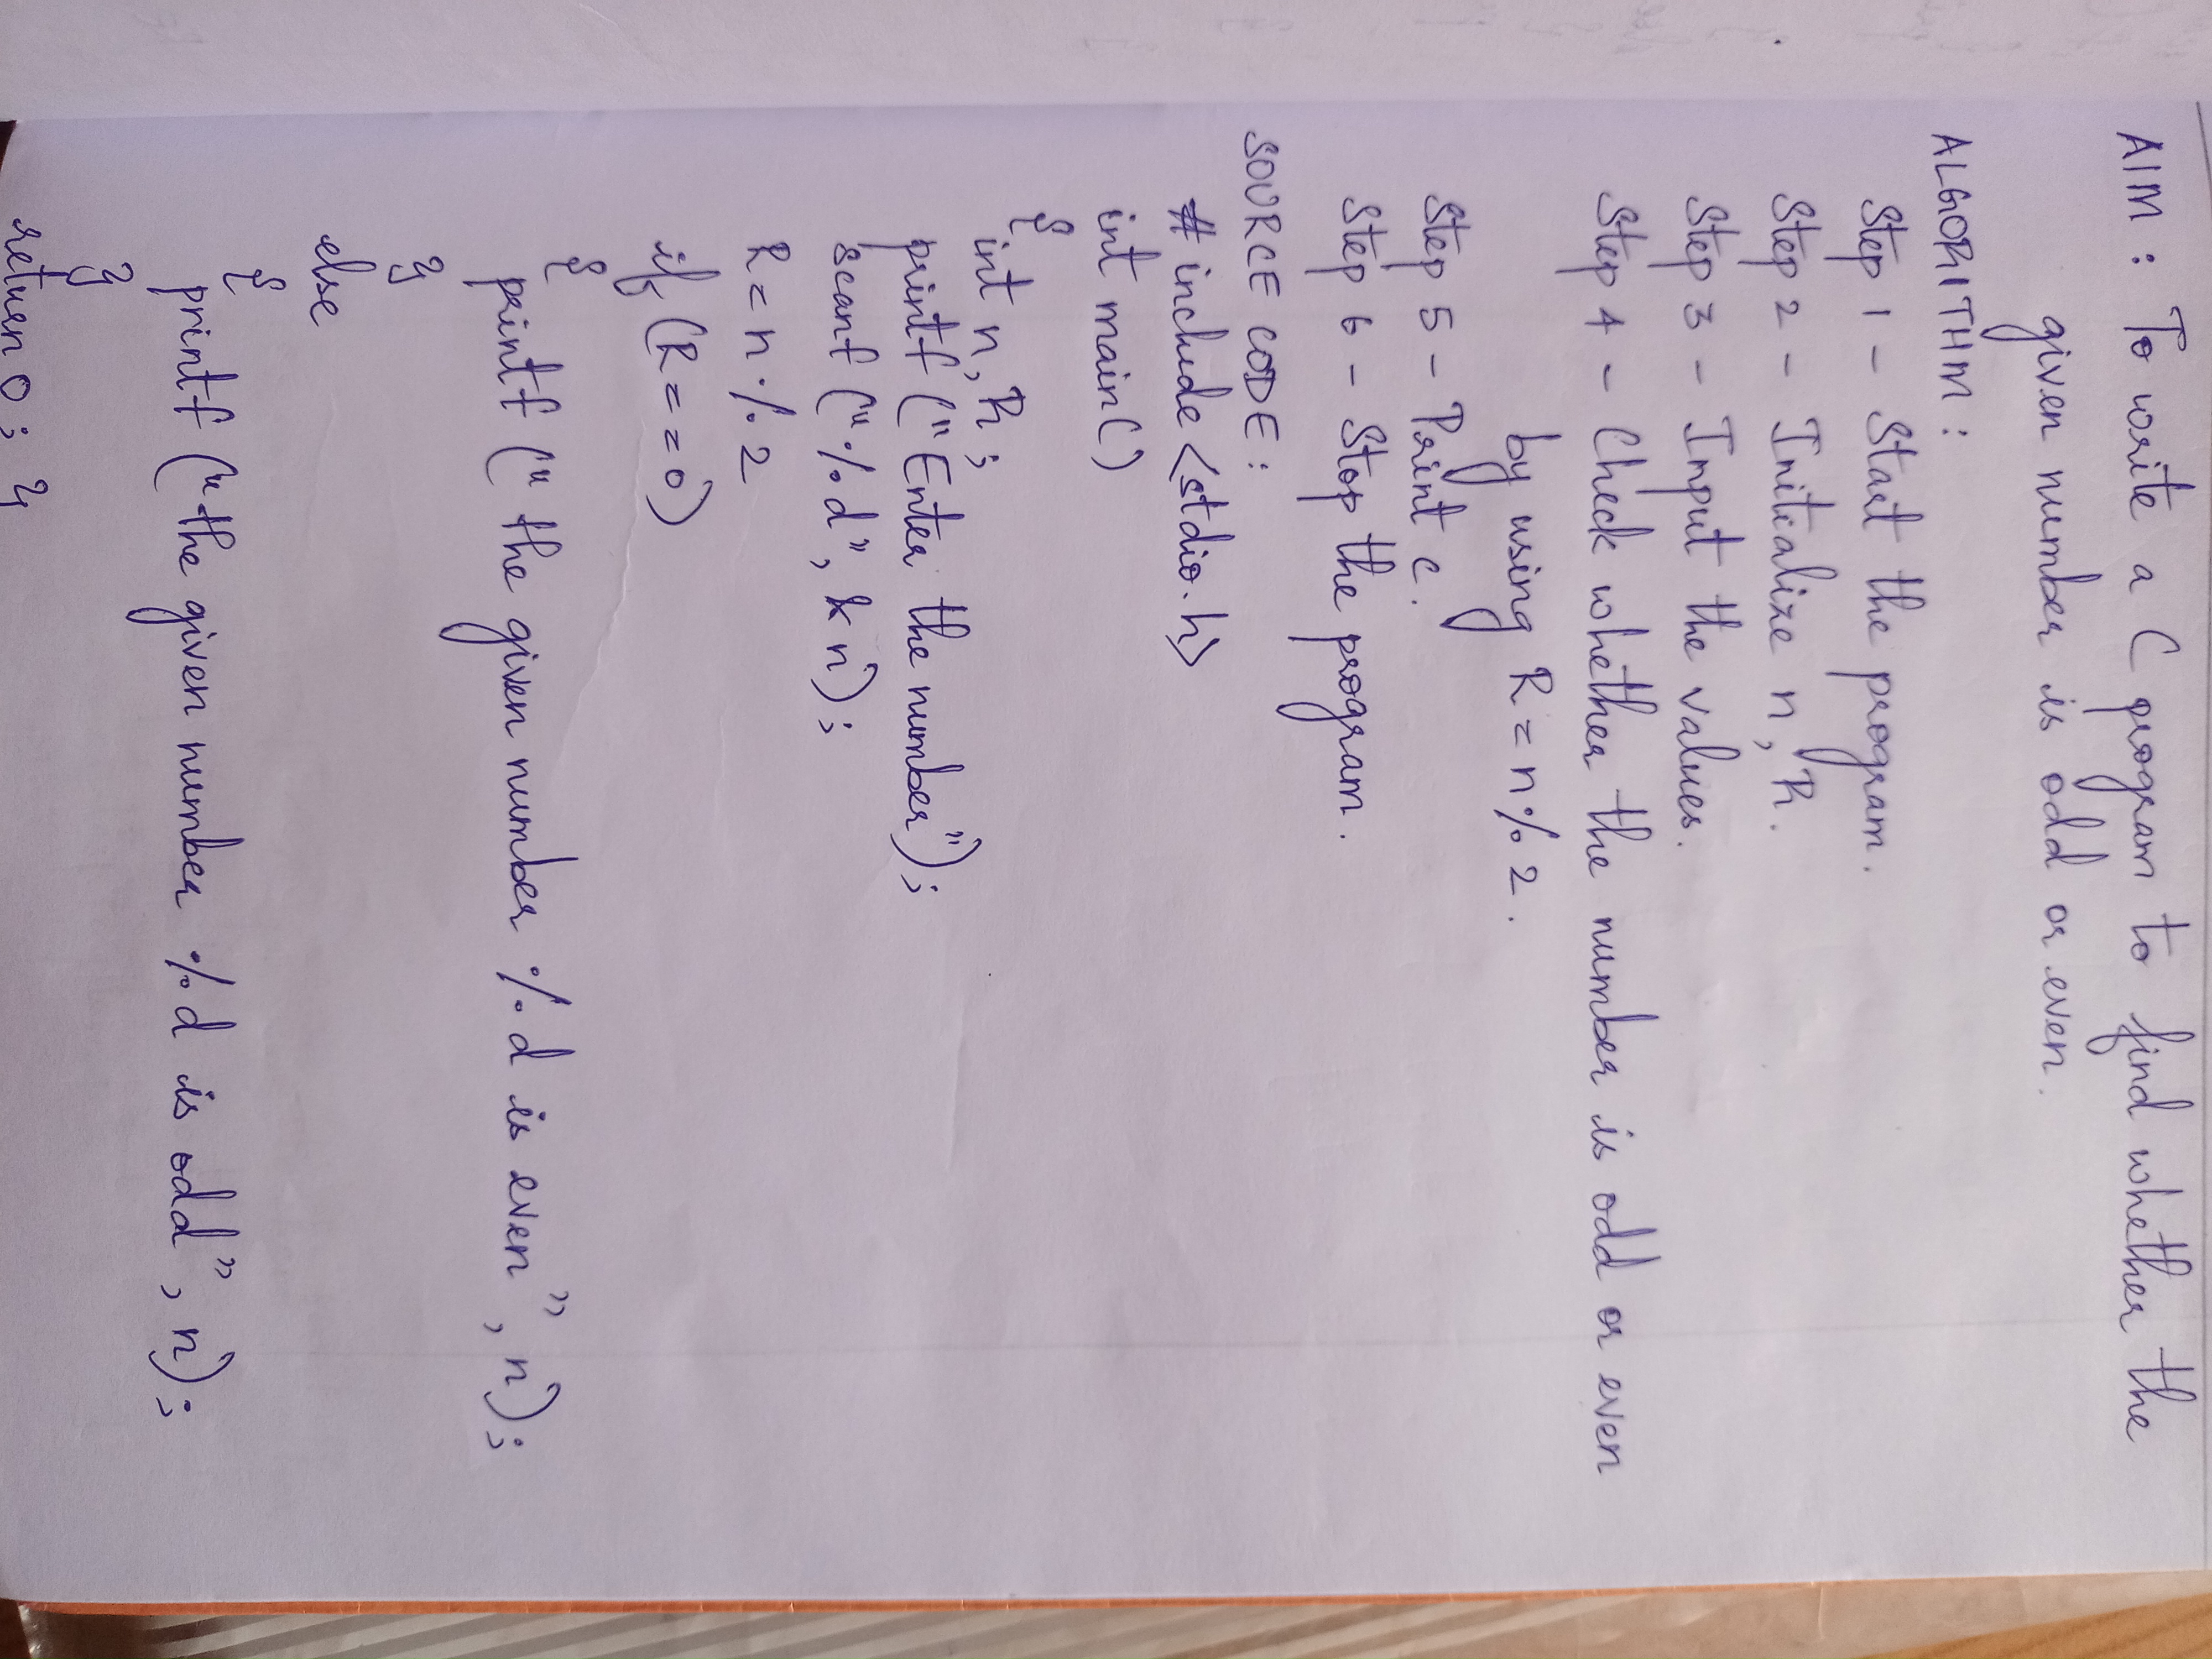 AIM : To write a C program to find whether the
given number is odd or even.
ALGORITHM :
Step 1 - Start the program.
Step 2 - Initialize n, R.
Step 3 - Input the values.
Step 4 - Check whether the number is odd or even
by using R = n % 2.
Step 5 - Print c.
Step 6 - Stop the program.
SOURCE CODE :
# include <stdio.h>
int main()
{
int n, R ;
printf ("Enter the number");
scanf ("%d", &n);
R = n % 2
if (R == 0)
{
printf (" the given number %d is even", n);
}
else
{
printf ("the given number %d is odd", n);
}
return 0; }